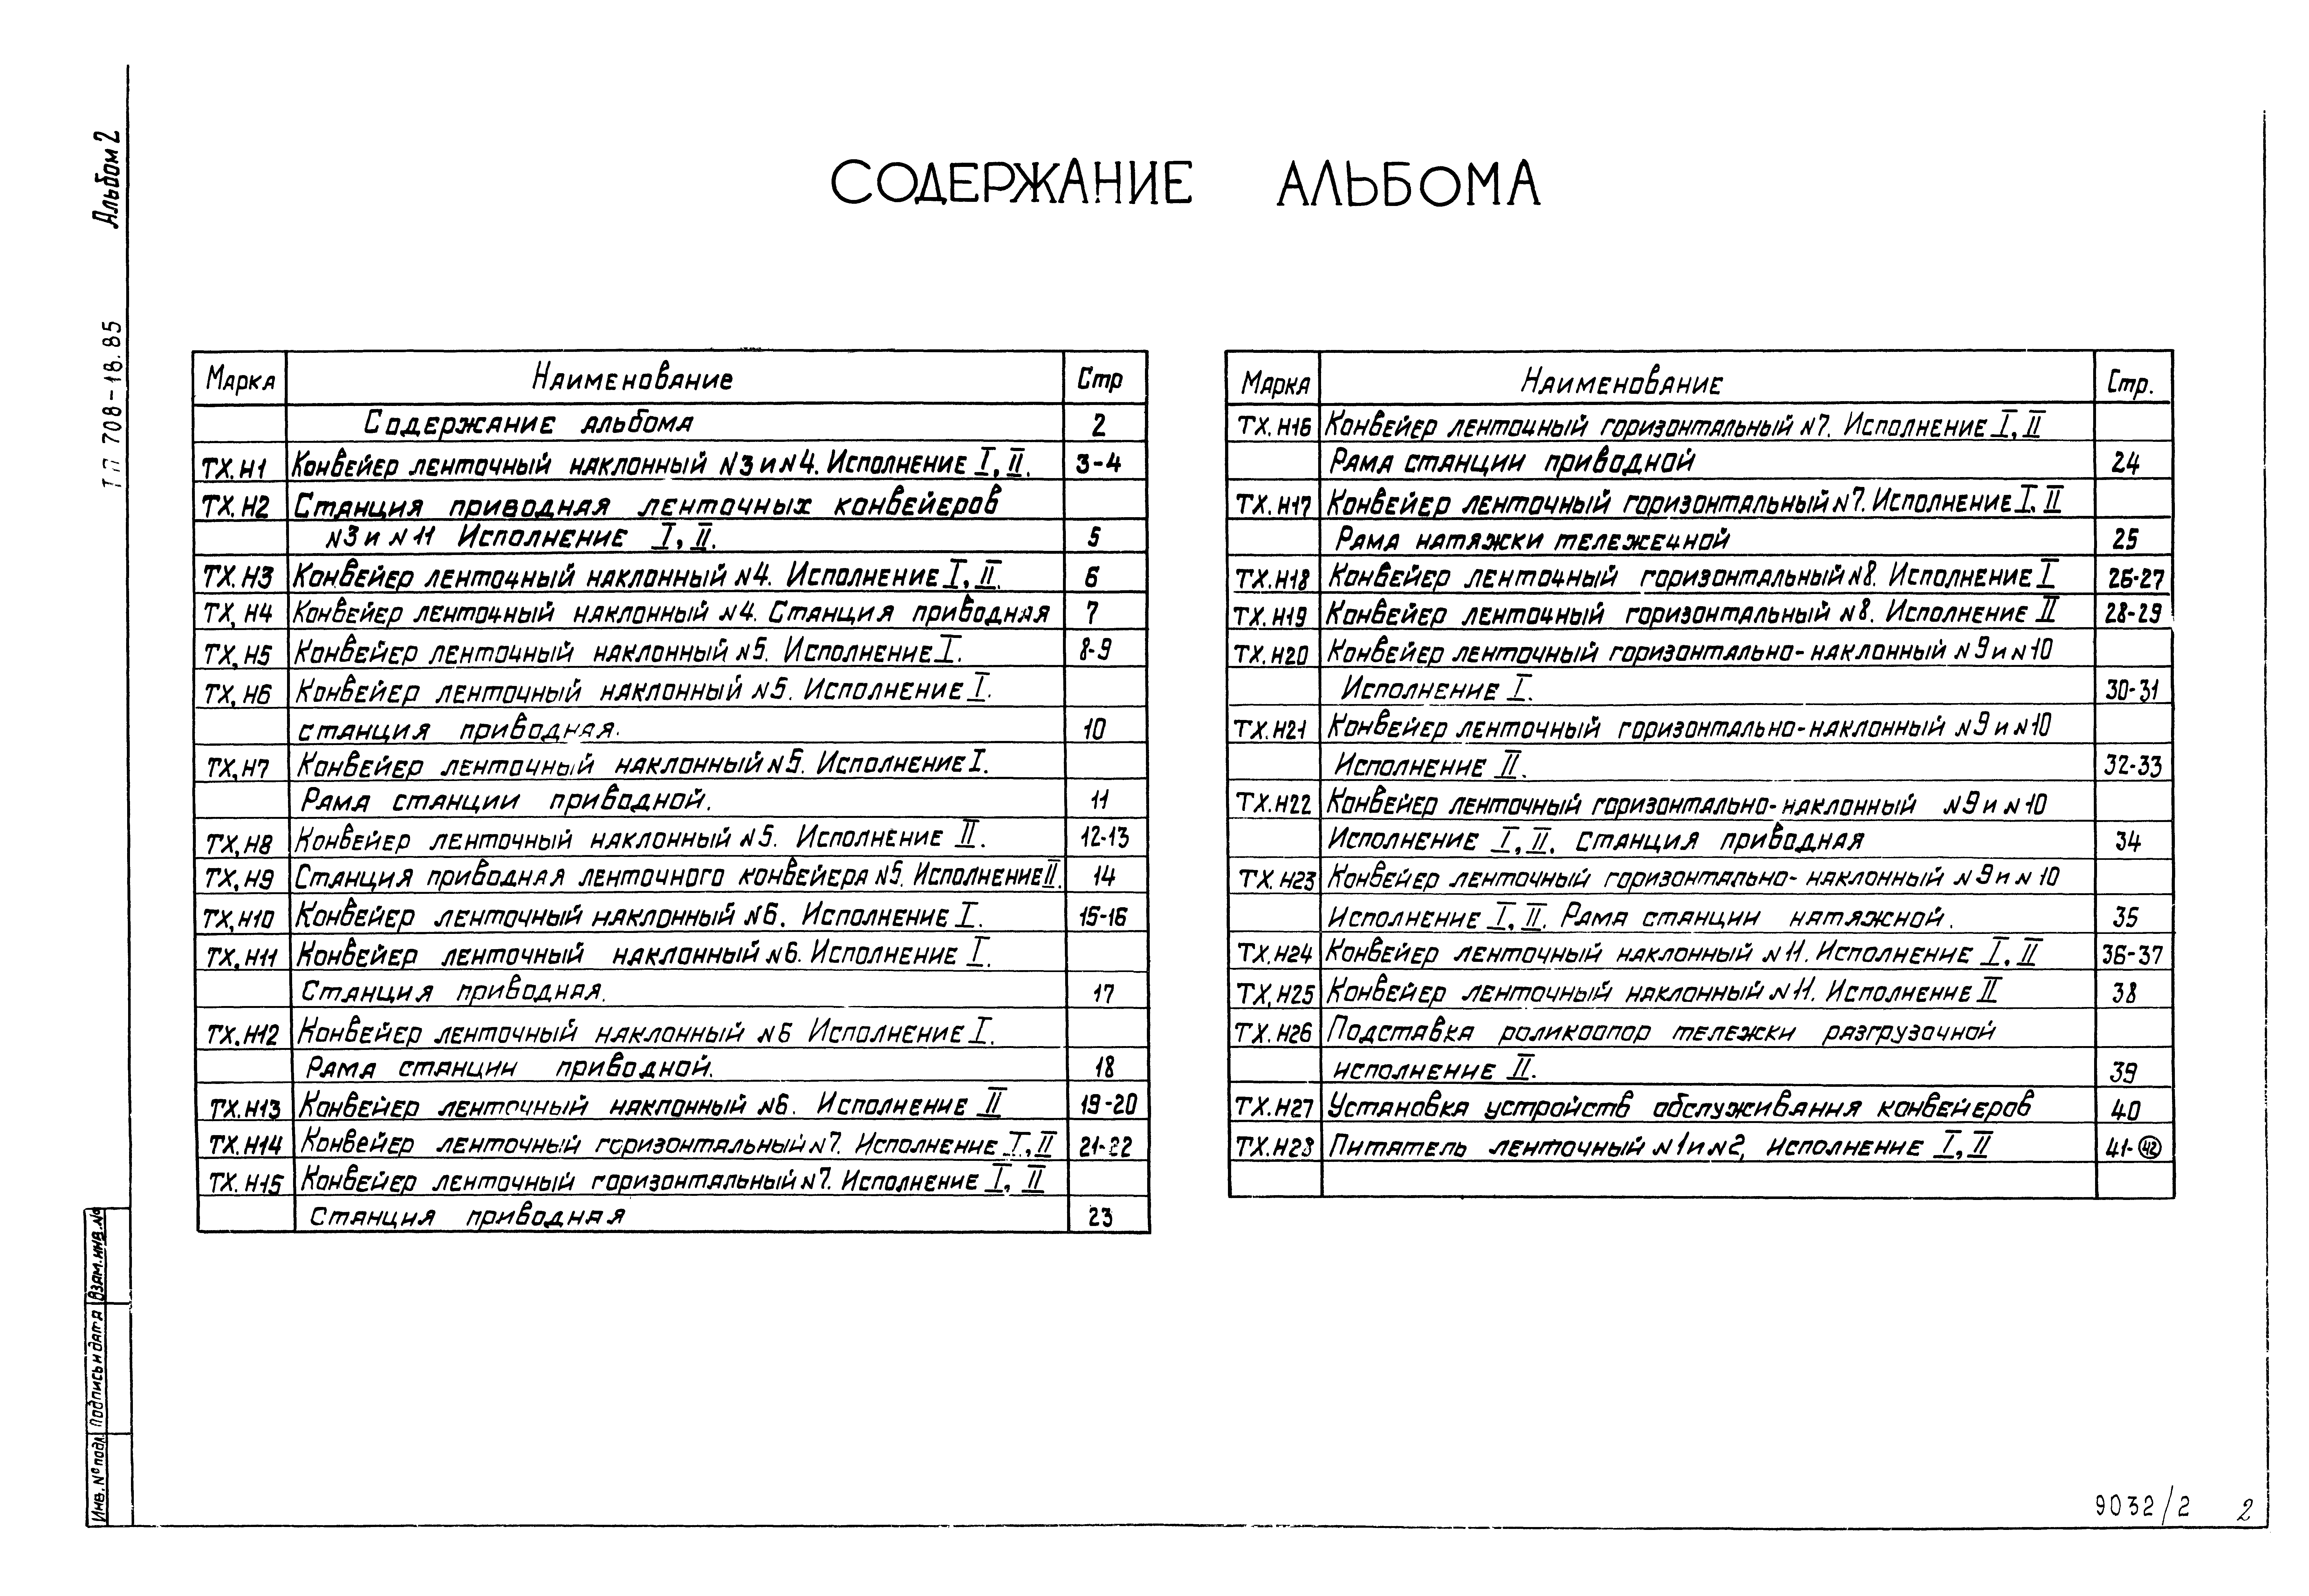 Альбом 2
ТП 708-18.85
СОДЕРЖАНИЕ АЛЬБОМА
Марка Наименование Стр
Содержание альбома 2
ТХ.Н1 Конвейер ленточный наклонный №3 и №4. Исполнение I, II. 3-4
ТХ.Н2 Станция приводная ленточных конвейеров
№3 и №11 Исполнение I, II. 5
ТХ.Н3 Конвейер ленточный наклонный №4. Исполнение I, II. 6
ТХ,Н4 Конвейер ленточный наклонный №4. Станция приводная 7
ТХ,Н5 Конвейер ленточный наклонный №5. Исполнение I. 8-9
ТХ,Н6 Конвейер ленточный наклонный №5. Исполнение I.
станция приводная. 10
ТХ,Н7 Конвейер ленточный наклонный №5. Исполнение I.
Рама станции приводной. 11
ТХ,Н8 Конвейер ленточный наклонный №5. Исполнение II. 12-13
ТХ,Н9 Станция приводная ленточного конвейера №5. Исполнение II. 14
ТХ,Н10 Конвейер ленточный наклонный №6. Исполнение I. 15-16
ТХ,Н11 Конвейер ленточный наклонный №6. Исполнение I.
Станция приводная. 17
ТХ.Н12 Конвейер ленточный наклонный №6 Исполнение I.
Рама станции приводной. 18
ТХ.Н13 Конвейер ленточный наклонный №6. Исполнение II 19-20
ТХ.Н14 Конвейер ленточный горизонтальный №7. Исполнение I, II 21-22
ТХ.Н15 Конвейер ленточный горизонтальный №7. Исполнение I, II
Станция приводная 23
Марка Наименование Стр.
ТХ.Н16 Конвейер ленточный горизонтальный №7. Исполнение I, II
Рама станции приводной 24
ТХ.Н17 Конвейер ленточный горизонтальный №7. Исполнение I, II
Рама натяжки тележечной 25
ТХ.Н18 Конвейер ленточный горизонтальный №8. Исполнение I 26-27
ТХ.Н19 Конвейер ленточный горизонтальный №8. Исполнение II 28-29
ТХ.Н20 Конвейер ленточный горизонтально-наклонный №9 и №10
Исполнение I. 30-31
ТХ.Н21 Конвейер ленточный горизонтально-наклонный №9 и №10
Исполнение II. 32-33
ТХ.Н22 Конвейер ленточный горизонтально-наклонный №9 и №10
Исполнение I, II. Станция приводная 34
ТХ.Н23 Конвейер ленточный горизонтально-наклонный №9 и №10
Исполнение I, II. Рама станции натяжной. 35
ТХ,Н24 Конвейер ленточный наклонный №11. Исполнение I, II 36-37
ТХ,Н25 Конвейер ленточный наклонный №11. Исполнение II 38
ТХ.Н26 Подставка роликоопор тележки разгрузочной
исполнение II. 39
ТХ.Н27 Установка устройств обслуживания конвейеров 40
ТХ.Н28 Питатель ленточный №1 и №2, исполнение I, II 41-42
Взам.инв.№
Подпись и дата
Инв.№ подл.
9032/2
2